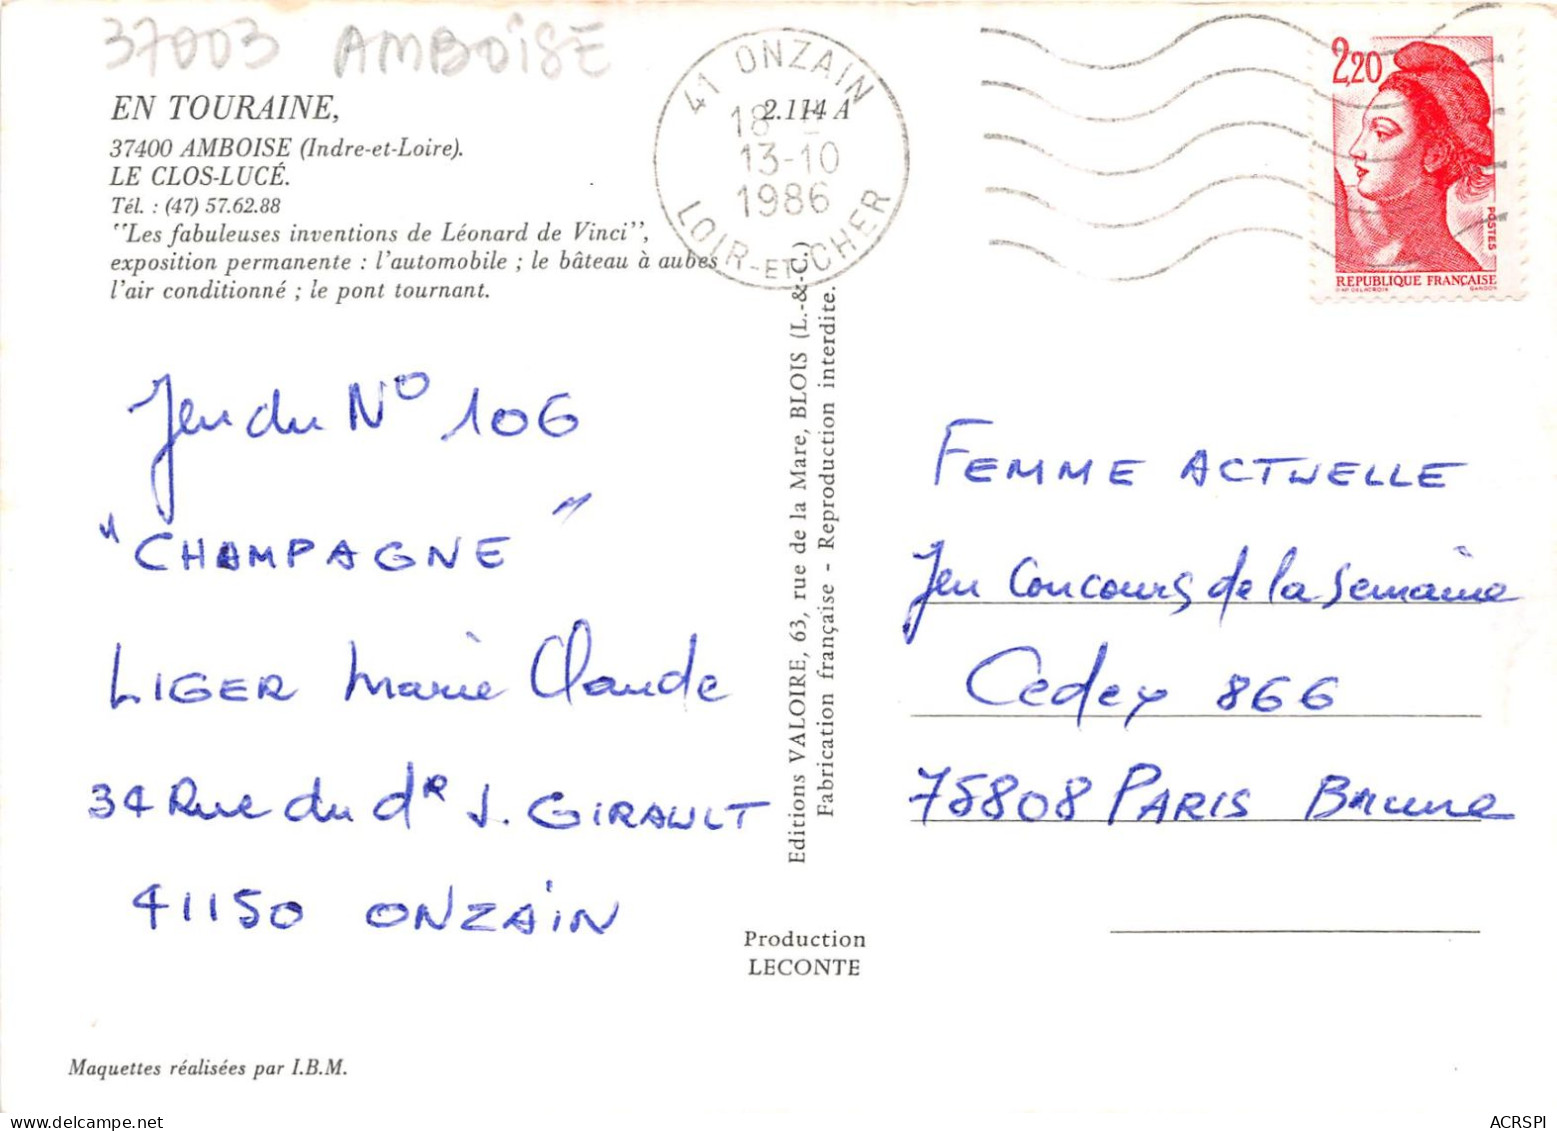 37003 AMBOISE
EN TOURAINE,
37400 AMBOISE (Indre-et-Loire).
LE CLOS-LUCÉ.
Tél. : (47) 57.62.88
"Les fabuleuses inventions de Léonard de Vinci",
exposition permanente : l'automobile ; le bâteau à aubes
l'air conditionné ; le pont tournant.
2.114 A
41 ONZAIN
18 H
13-10
1986
LOIR-ET-CHER
2,20
POSTES
REPUBLIQUE FRANÇAISE
D'AP. DELACROIX GANDON
Jeu du N° 106
"CHAMPAGNE"
LIGER Marie Claude
34 Rue du dR J. GIRAULT
41150 ONZAIN
Editions VALOIRE, 63, rue de la Mare, BLOIS (L.-&-C.)
Fabrication française - Reproduction interdite.
FEMME ACTUELLE
Jeu Concours de la Semaine
Cedex 866
75808 PARIS Brune
Production
LECONTE
Maquettes réalisées par I.B.M.
ACRSPI